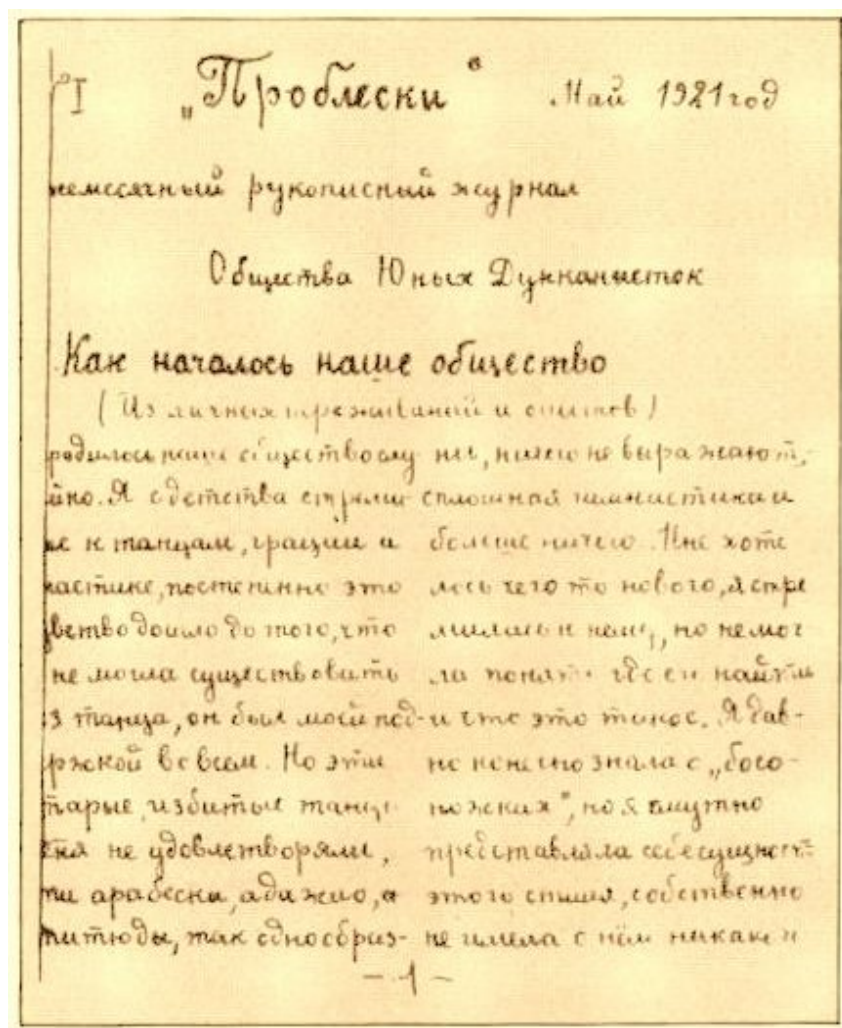 I „Проблески“ Май 1921 год
немесячный рукописный журнал
Общества Юных Дунканисток
Как началось наше общество
(Из личных переживаний и опытов)
родилось наше общество слу
йно. Я с детства стреми
се к танцам, грации и
ластике, постепенно это
вство дошло до того, что
не могла существовать
з танца, он был моей под-
ржкой во всем. Но эти
тарые, избитые танцы
еня не удовлетворяли,
ти арабески, адажио, а
титюды, так однообраз-
ны, ничего не выражают,
сплошная гимнастика и
больше ничего. Мне хоте
лось чего то нового, я стре
милась к нему, но не мог
ла понять где его найти
и что это такое. Я дав-
но конечно знала о „босо-
ножках“, но я смутно
представляла себе сущность
этого стиля, собственно
не имела о нём никакой
- 1 -